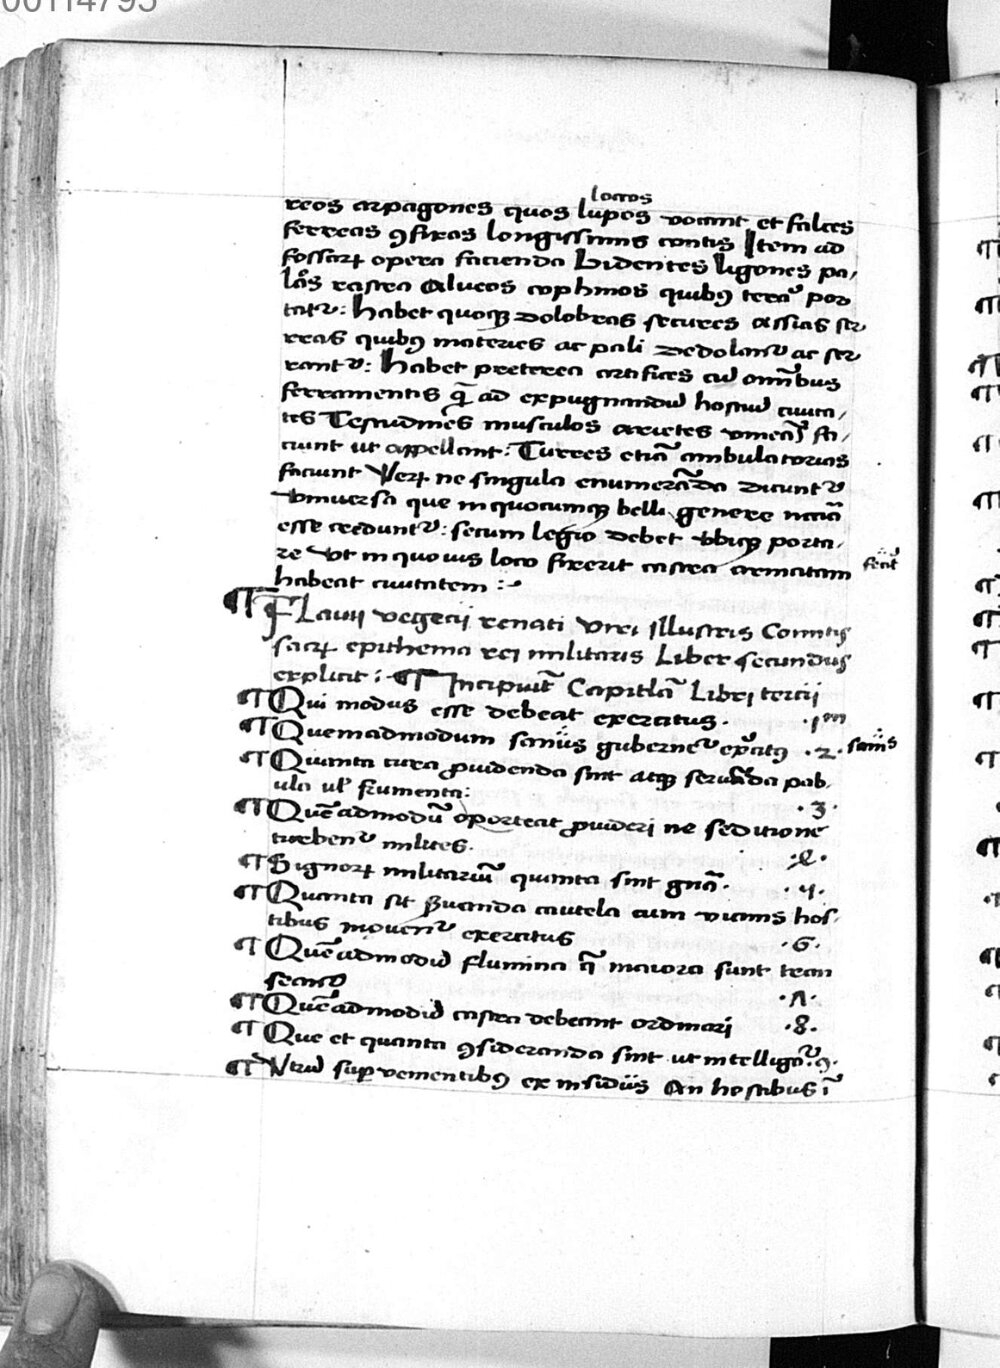 00114795
locros
reos arpagones quos lupos vocant et falces
ferreas ꝯfixas longissimis contis Item ad
fossaꝝ opera facienda Bidentes ligones pa,
las rastra Alueos cophinos quibꝯ terā por
tatᷣ: habet quoqꝫ dolobras secures Assias ser
reas quibꝯ materies ac pali dedolanᷣ ac ser
rantᷣ: habet preterea artifices cū om̄ibus
ferramentis q̄ ad expugnandū hostiū ciuita,
tes Testudines musculos arietes vineas fa,
ciunt ut appellant: Turres etiā ambulatorias
faciunt Veꝝ ne singula enumerāda dicuntᷣ
Vniuersa que in quocumqꝫ belli genere nccīā
esse creduntᷣ: secum legio debet vbiqꝫ porta,
re Vt in quouis loco fixerit castra armatam
habeat ciuitatem :~
Flauij vegecij renati Viri Illustris Comitis
sacꝝ epithema rei militaris Liber secundus
explicit: ¶ Incipiūt Capitlā Libri tercij
¶ Qui modus esse debeat exercitus. .1m
¶ Quemadmodum sanus gubernetᷣ exercitꝯ .2. sanus
¶ Quanta cura ꝓuidenda sint atqꝫ seruāda pab
ula ul' frumenta: .3.
¶ Quēadmodū oporteat ꝓuideri ne seditione
turbenᷣ milites. .4.
¶ Signoꝝ militariū quanta sint gnā. .5.
¶ Quanta sit Seruanda cautela cum vicinis hos,
tibus mouenᷣ exercitus .6.
¶ Quēadmodū flumina q̄ maiora sunt tran
seant .7.
¶ Quēadmodū castra debeant ordinari .8.
¶ Que et quanta ꝯsideranda sint ut intelligāᷣ .9.
¶ Vtrū sup̱uenientibꝯ ex insidiis An hostibus ī